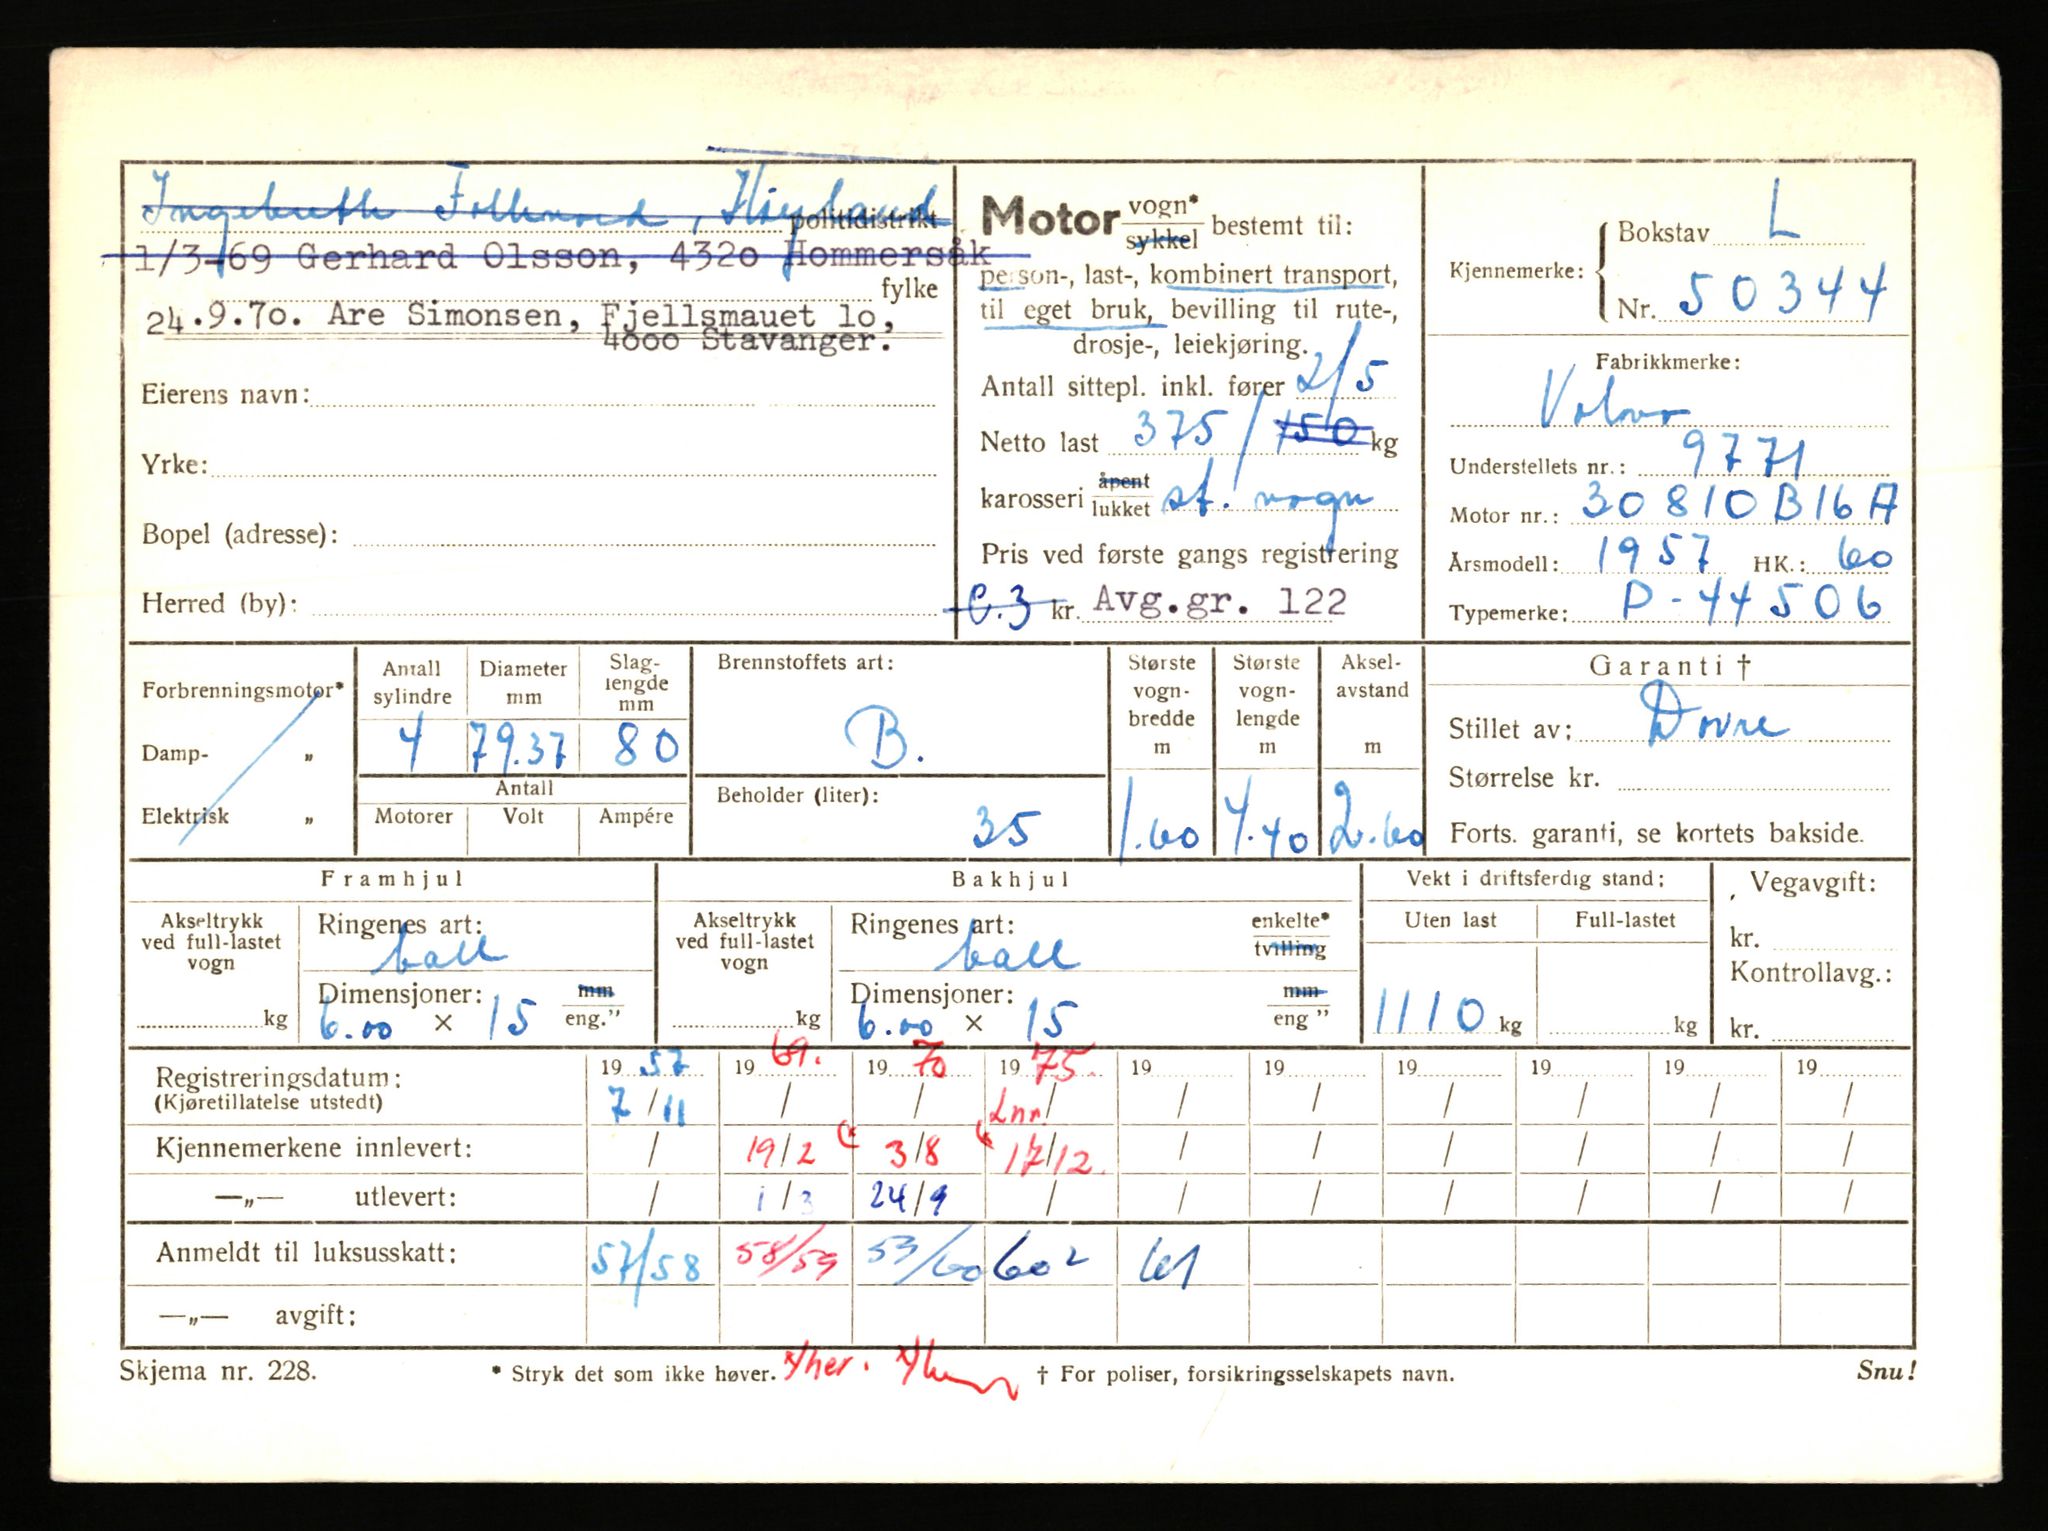 Høyland
politidistrikt
1/3-69 Gerhard Olsson, 4320 Hommersåk
fylke
24.9.70. Are Simonsen, Fjellsmauet 10,
4000 Stavanger.
Eierens navn:
Yrke:
Bopel (adresse):
Herred (by):
Motor vogn* sykkel bestemt til:
person-, last-, kombinert transport,
til eget bruk, bevilling til rute-,
drosje-, leiekjøring.
Antall sittepl. inkl. fører 2/5
Netto last 375 / 150 kg
karosseri åpent lukket st. vogn
Pris ved første gangs registrering
C.3 kr. Avg.gr. 122
Kjennemerke:
Bokstav L
Nr. 50344
Fabrikkmerke:
Volvo
Understellets nr.: 9771
Motor nr.: 30810B16A
Årsmodell: 1957 HK.: 60
Typemerke: P-44506
Forbrenningsmotor*
Damp- „
Elektrisk „
Antall sylindre
4
Diameter mm
79.37
Slag-lengde mm
80
Antall
Motorer Volt Ampére
Brennstoffets art:
B.
Beholder (liter):
35
Største vogn-bredde m
1.60
Største vogn-lengde m
4.40
Aksel-avstand m
2.60
Garanti †
Stillet av: Dovre
Størrelse kr.
Forts. garanti, se kortets bakside.
Framhjul
Akseltrykk ved full-lastet vogn
kg
Ringenes art:
ball
Dimensjoner: mm
6.00 × 15 eng."
Bakhjul
Akseltrykk ved full-lastet vogn
kg
Ringenes art: enkelte*
ball tvilling
Dimensjoner: mm
6.00 × 15 eng "
Vekt i driftsferdig stand:
Uten last Full-lastet
1110 kg kg
Vegavgift:
kr.
Kontrollavg.:
kr.
Registreringsdatum: 19 57 19 69. 19 70 19 75. 19 19 19 19 19 19
(Kjøretillatelse utstedt) 7/11 / / Lnr. / / / / / / /
Kjennemerkene innlevert: / 19/2 (* 3/8 (* 17/12. / / / / / /
—„— utlevert: / 1/3 24/9 / / / / / / /
Anmeldt til luksusskatt: 57/58 58/59 53/60 60² 61
—„— avgift:
Skjema nr. 228. * Stryk det som ikke høver. */her. † For poliser, forsikringsselskapets navn. Snu!